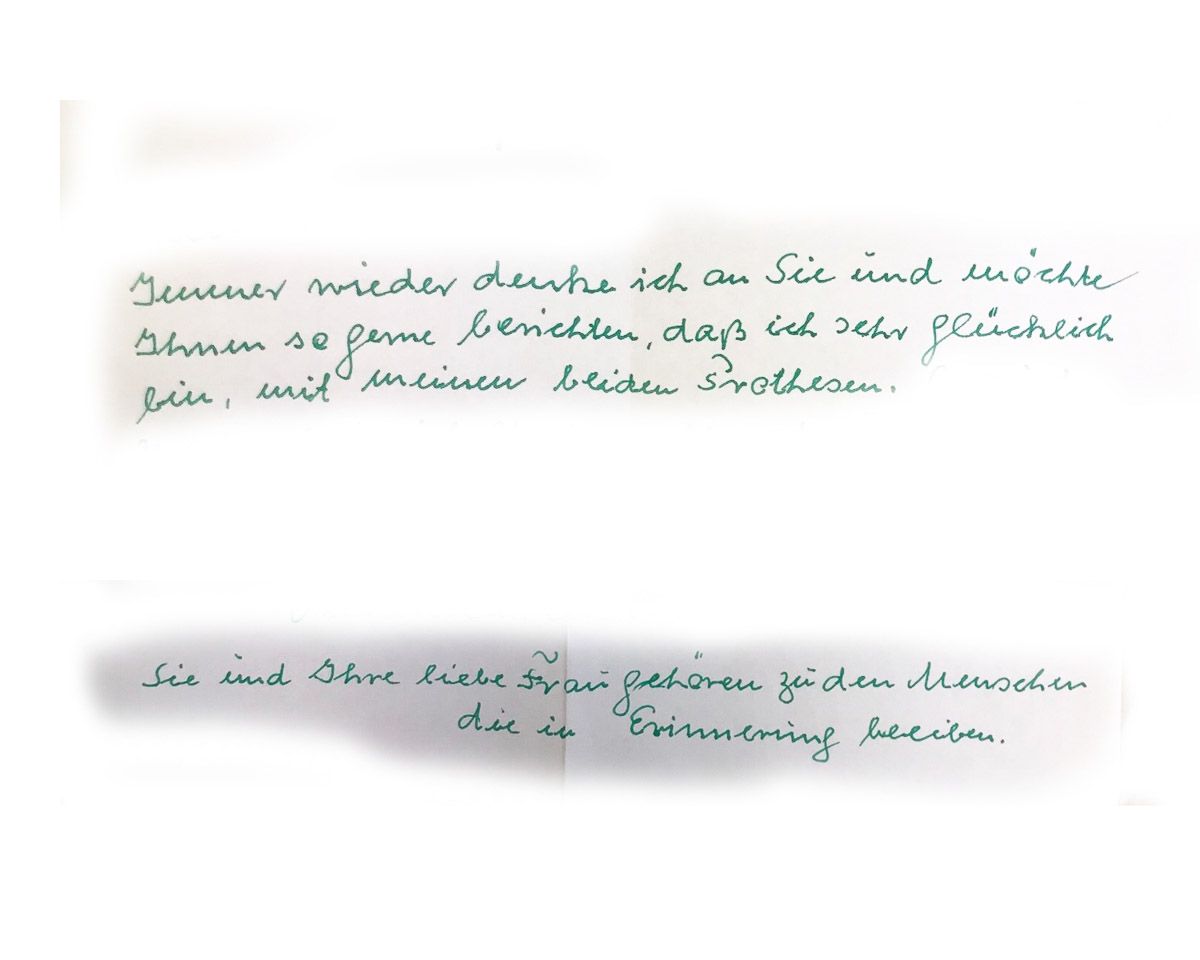 Immer wieder denke ich an Sie und möchte
Ihnen so gerne berichten, daß ich sehr glücklich
bin, mit meinen beiden Prothesen.
Sie und Ihre liebe Frau gehören zu den Menschen
die in Erinnerung bleiben.